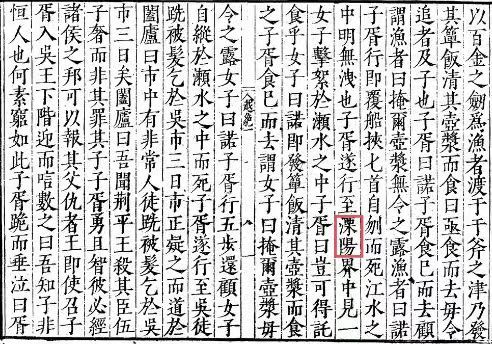 以百金之劍爲漁者渡于于斧之津乃發
其簞飯清其壺漿而食曰亟食而去毋令
追者及子也子胥曰諾子胥食已而去顧
謂漁者曰掩爾壺漿無令之露漁者曰諾
子胥行即覆船挾匕首自刎而死江水之
中明無洩也子胥遂行至溧陽界中見一
女子擊絮於瀨水之中子胥曰豈可得託
食乎女子曰諾即發簞飯清其壺漿而食
之子胥食已而去謂女子曰掩爾壺漿毋
越絕
令之露女子曰諾子胥行五步還顧女子
自縱於瀨水之中而死子胥遂行至吳徒
跣被髮乞於吳市三日市正疑之而道於
闔廬曰市中有非常人徒跣被髮乞於吳
市三日矣闔廬曰吾聞荊平王殺其臣伍
子奢而非其罪其子子胥勇且智彼必經
諸侯之邦可以報其父仇者王即使召子
胥入吳王下階迎而唁數之曰吾知子非
恒人也何素窮如此子胥跪而垂泣曰胥